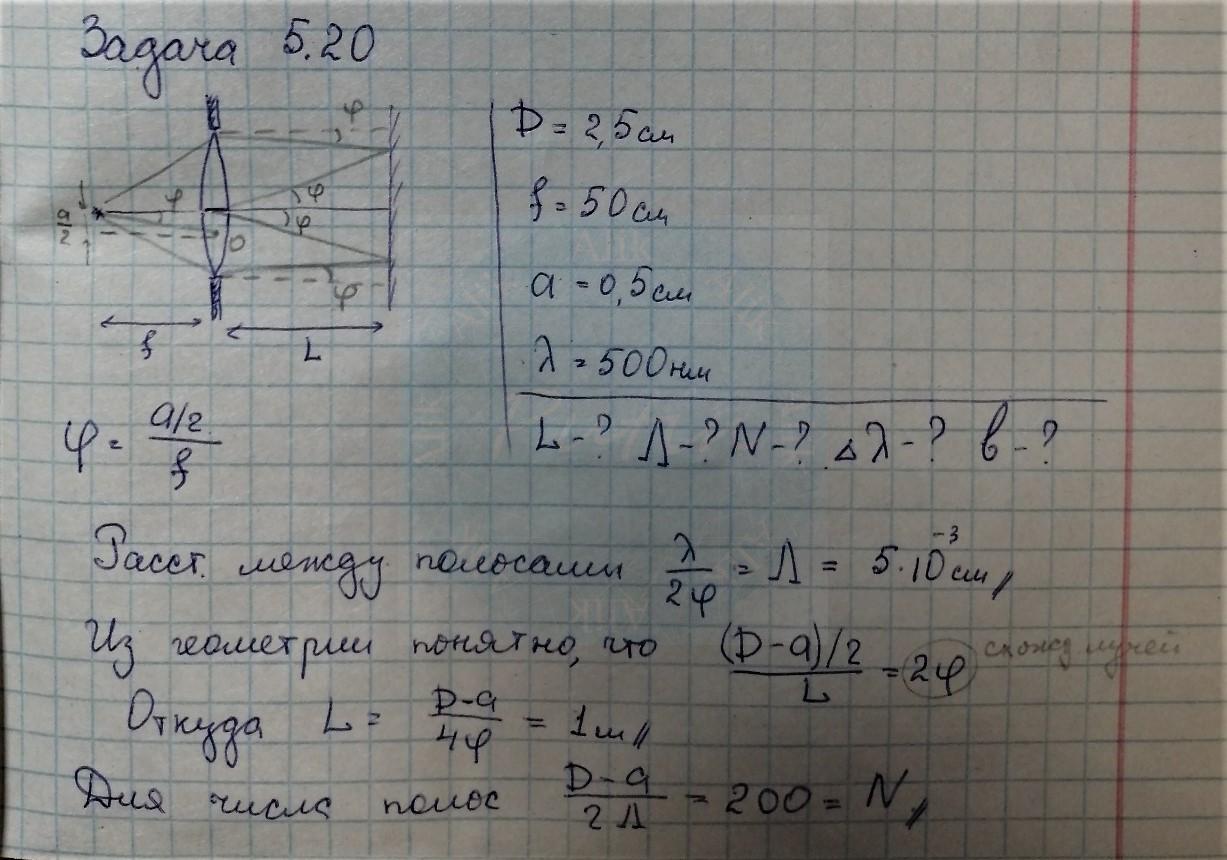 Задача 5.20
φ
φ
φ
φ
a/2
0
φ
f
L
D = 2,5 см
f = 50 см
a = 0,5 см
λ = 500 нм
L - ? Λ - ? N - ? Δλ - ? b - ?
φ = (a/2)/f
Расст. между полосами λ/2φ = Λ = 5·10⁻³ см //
Из геометрии понятно, что ((D-a)/2)/L = 2φ схожд лучей
Откуда L = (D-a)/4φ = 1 м //
Для числа полос (D-a)/2Λ = 200 = N //